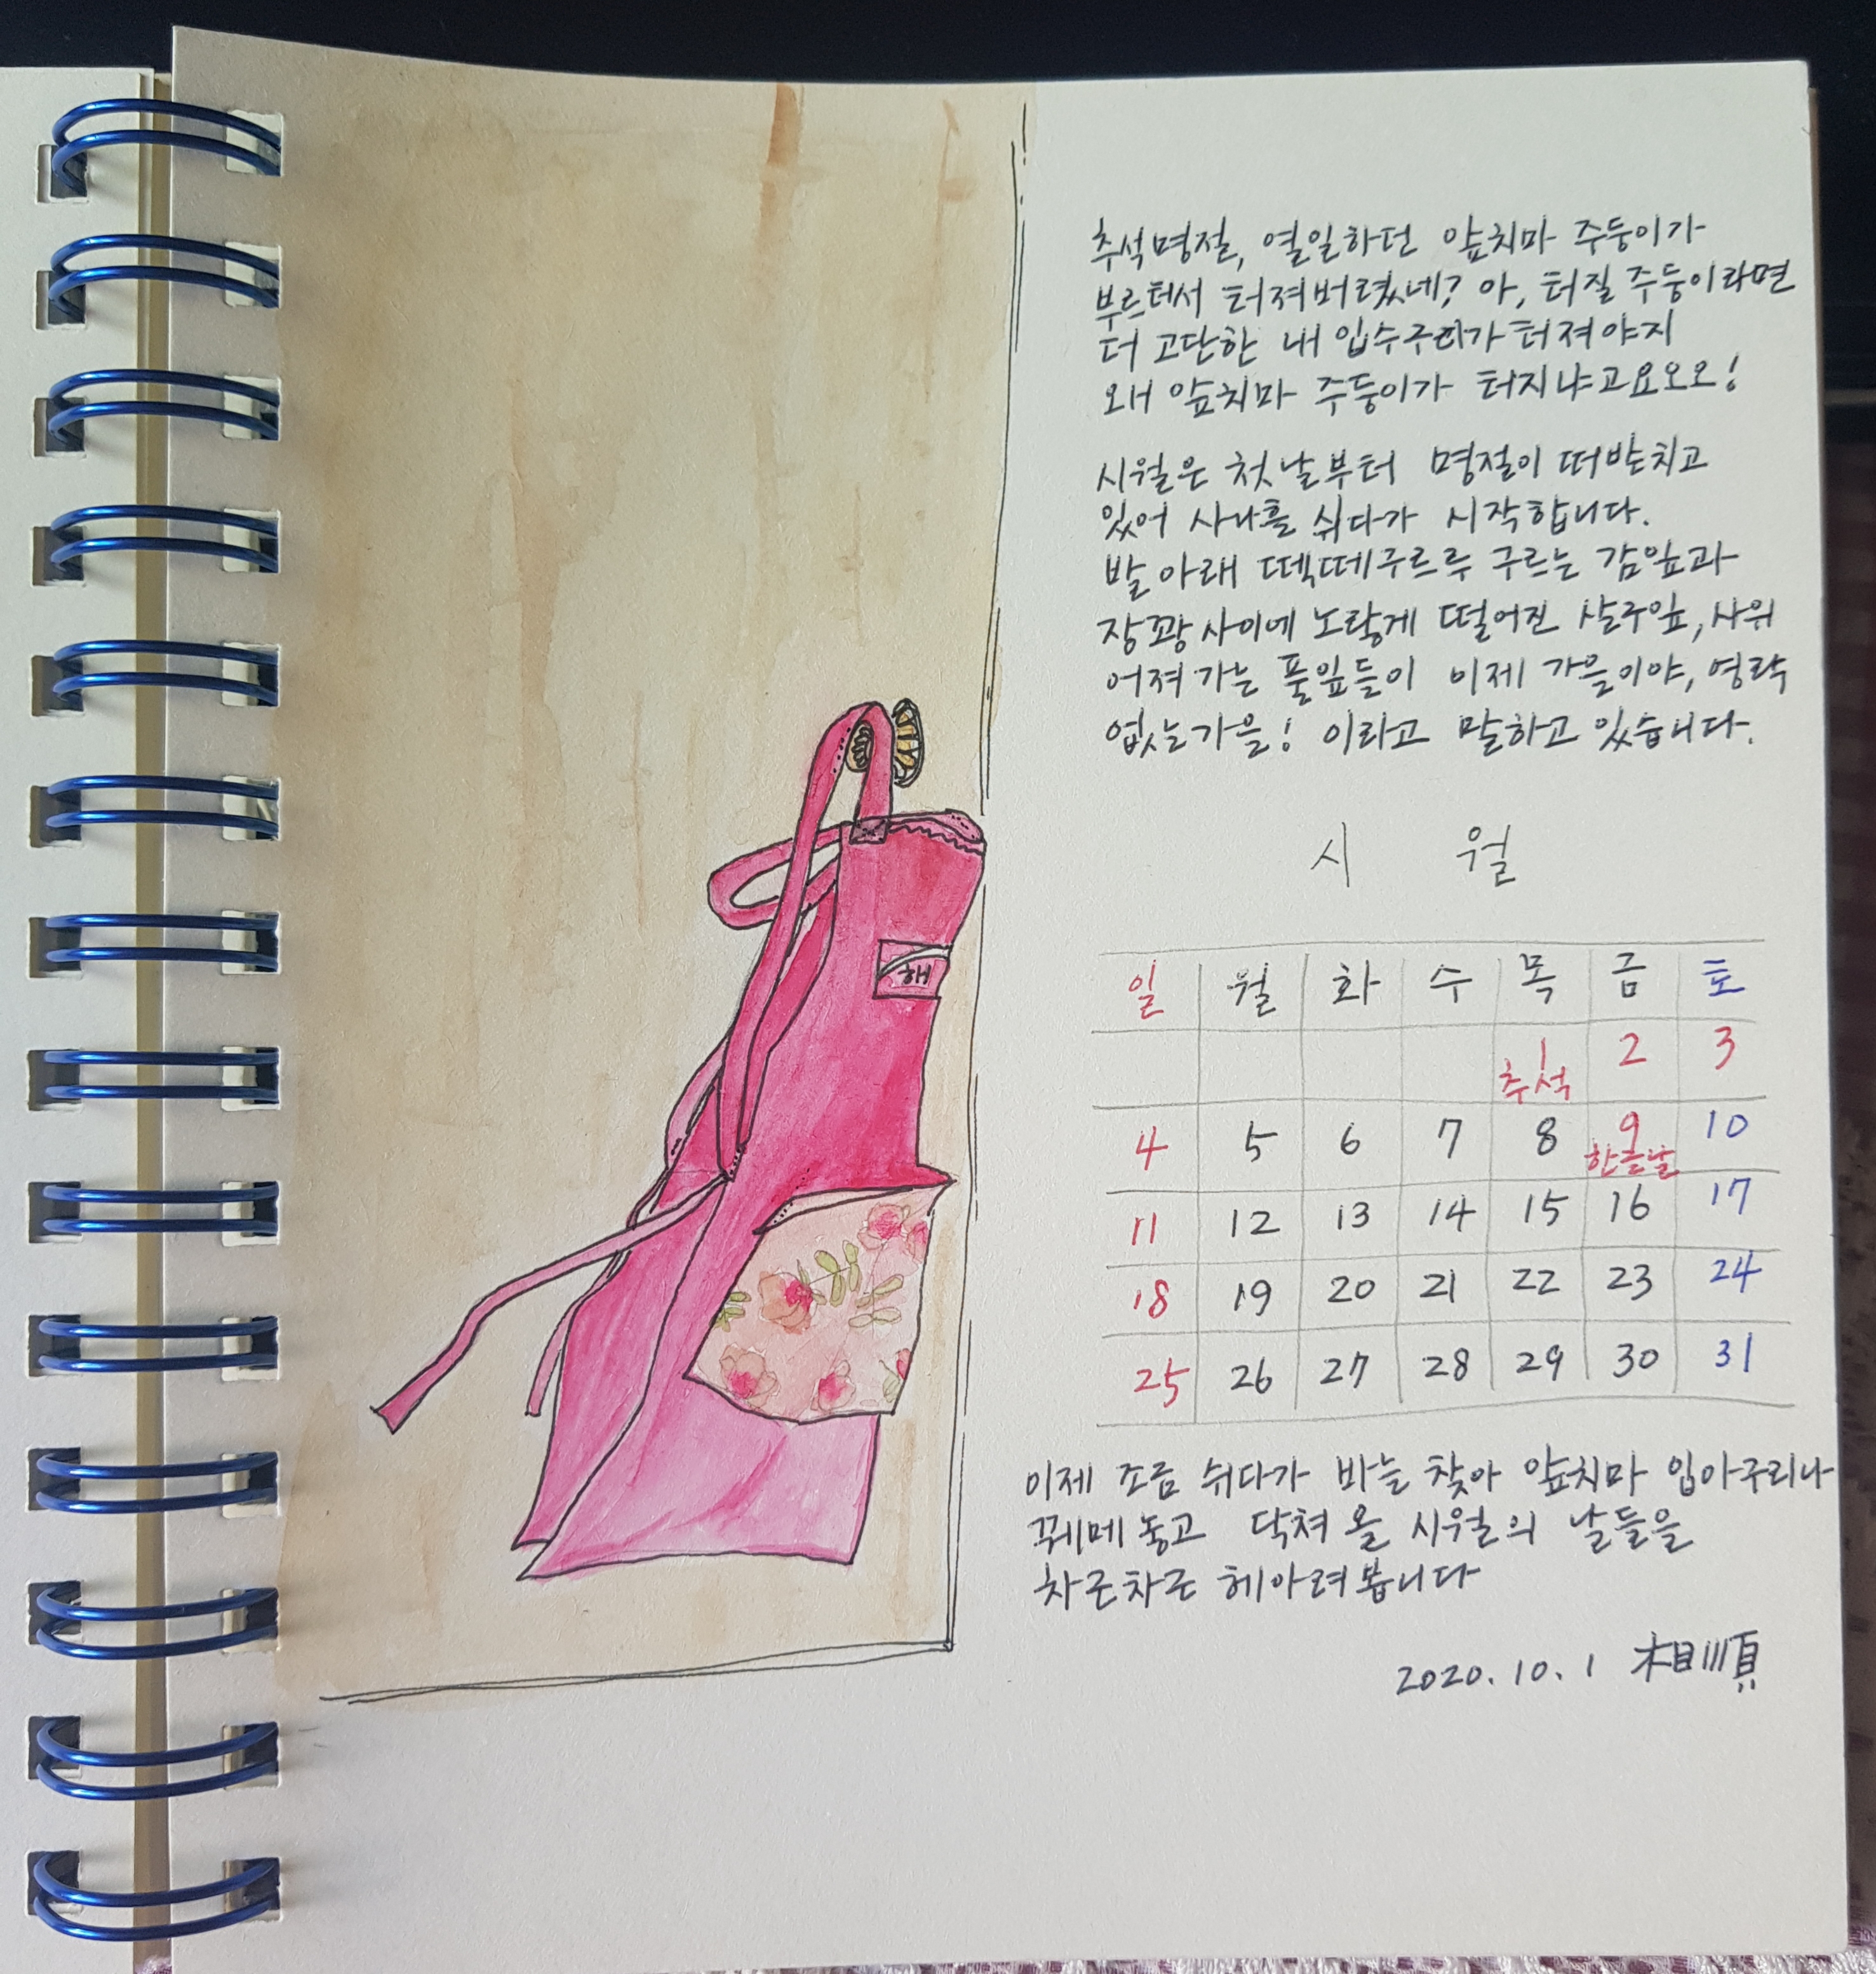 추석명절, 열일하던 앞치마 주둥이가
부르터서 터져버렸네? 아, 터질 주둥이라면
더 고단한 내 입수구리가 터져야지
왜 앞치마 주둥이가 터지냐고요오오!
시월은 첫날부터 명절이 떠받치고
있어 사나흘 쉬다가 시작합니다.
발 아래 떽떼구르르 구르는 감잎과
장꽝 사이에 노랗게 떨어진 살구잎, 사위
어져 가는 풀잎들이 이제 가을이야, 영락
없는 가을! 이라고 말하고 있습니다.
시 월
해
일 월 화 수 목 금 토
1 2 3
추석
4 5 6 7 8 9 10
한글날
11 12 13 14 15 16 17
18 19 20 21 22 23 24
25 26 27 28 29 30 31
이제 조금 쉬다가 바늘 찾아 앞치마 입아구리나
꿰메 놓고 닥쳐 올 시월의 날들을
차근차근 헤아려 봅니다
2020. 10. 1 相順